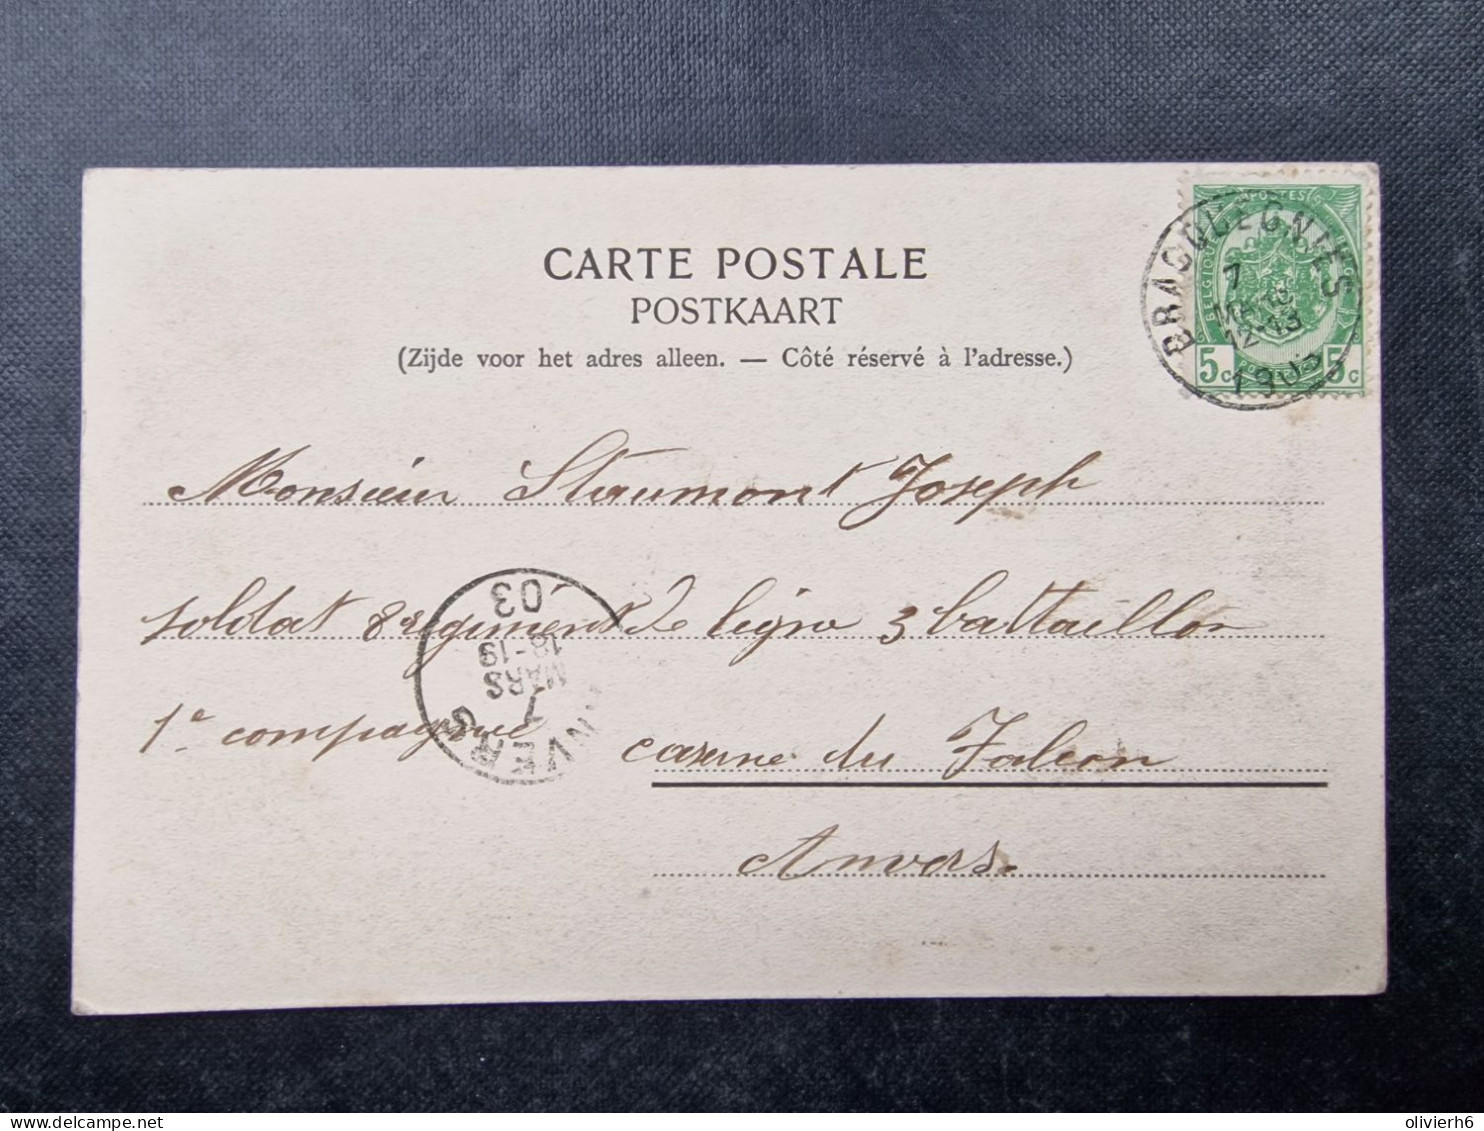 CARTE POSTALE
POSTKAART
(Zijde voor het adres alleen. — Côté réservé à l'adresse.)
POSTES
BELGIQUE
5c 5c
BRACQUEGNIES
7
MARS
12-13
1903
Monsieur Staumont Joseph
soldat 8 régiment de ligne 3 battaillon
1e compagnie caserne du Falcon
Anvers.
ANVERS
7
MARS
18-19
03
delcampe.net
olivierh6